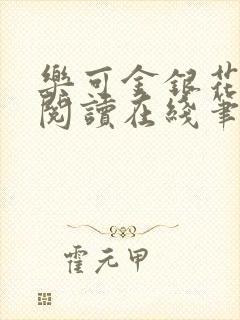 樂可金銀花
閱讀在綫筆
霍元甲